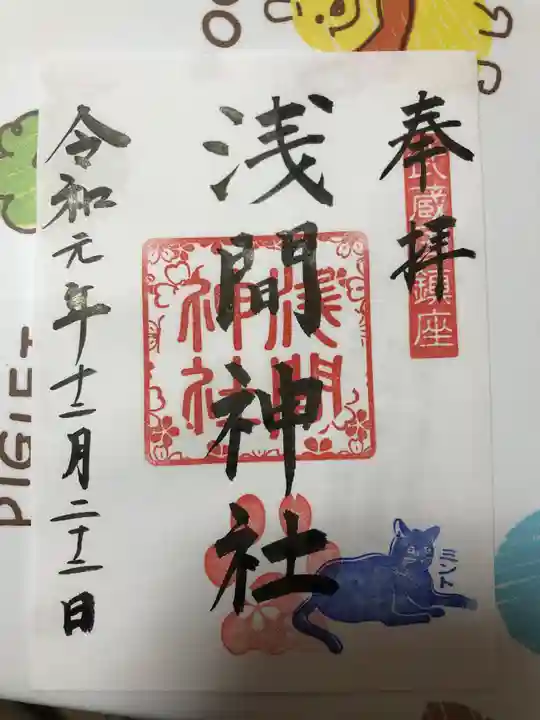 奉拝
武蔵国鎮座
浅間神社
浅間
神社
ミント
令和元年十二月二十二日
PIGLET